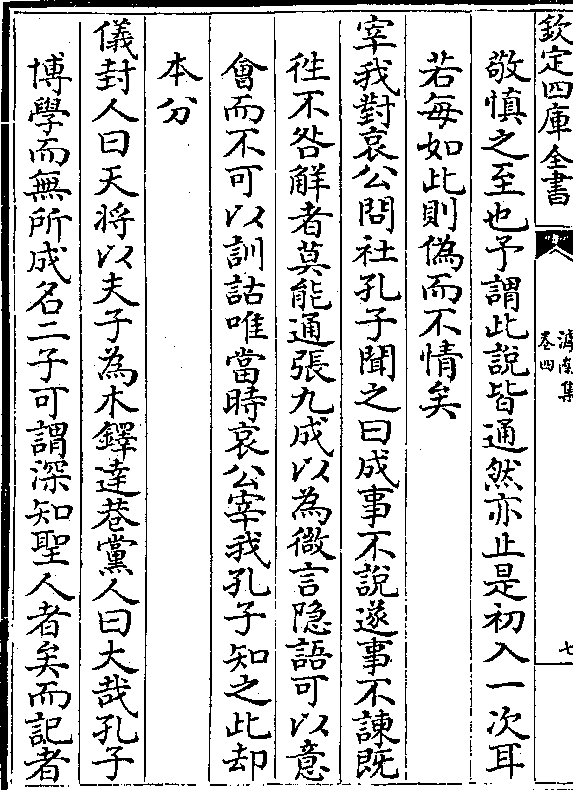 欽定四庫全書
滹南集
卷四
七
敬慎之至也予謂此說皆通然亦止是初入一次耳
若每如此則偽而不情矣
宰我對哀公問社孔子聞之曰成事不說遂事不諫既
徃不咎解者莫能通張九成以為微言隐語可以意
會而不可以訓詁唯當時哀公宰我孔子知之此却
本分
儀封人曰天将以夫子為木鐸達巷黨人曰大哉孔子
博學而無所成名二子可謂深知聖人者矣而記者